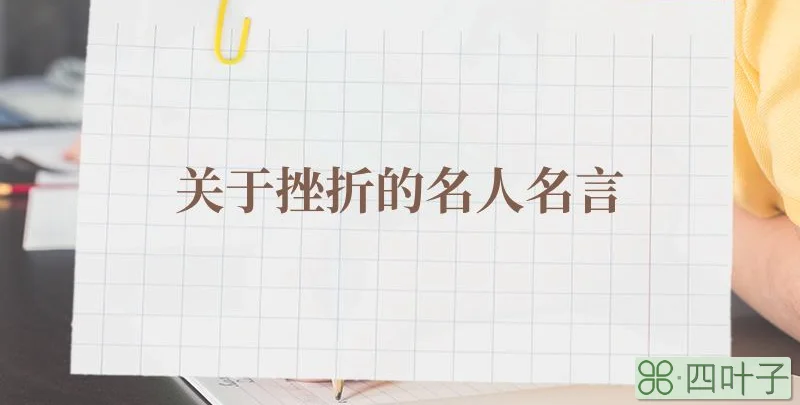 关于挫折的名人名言
四叶子